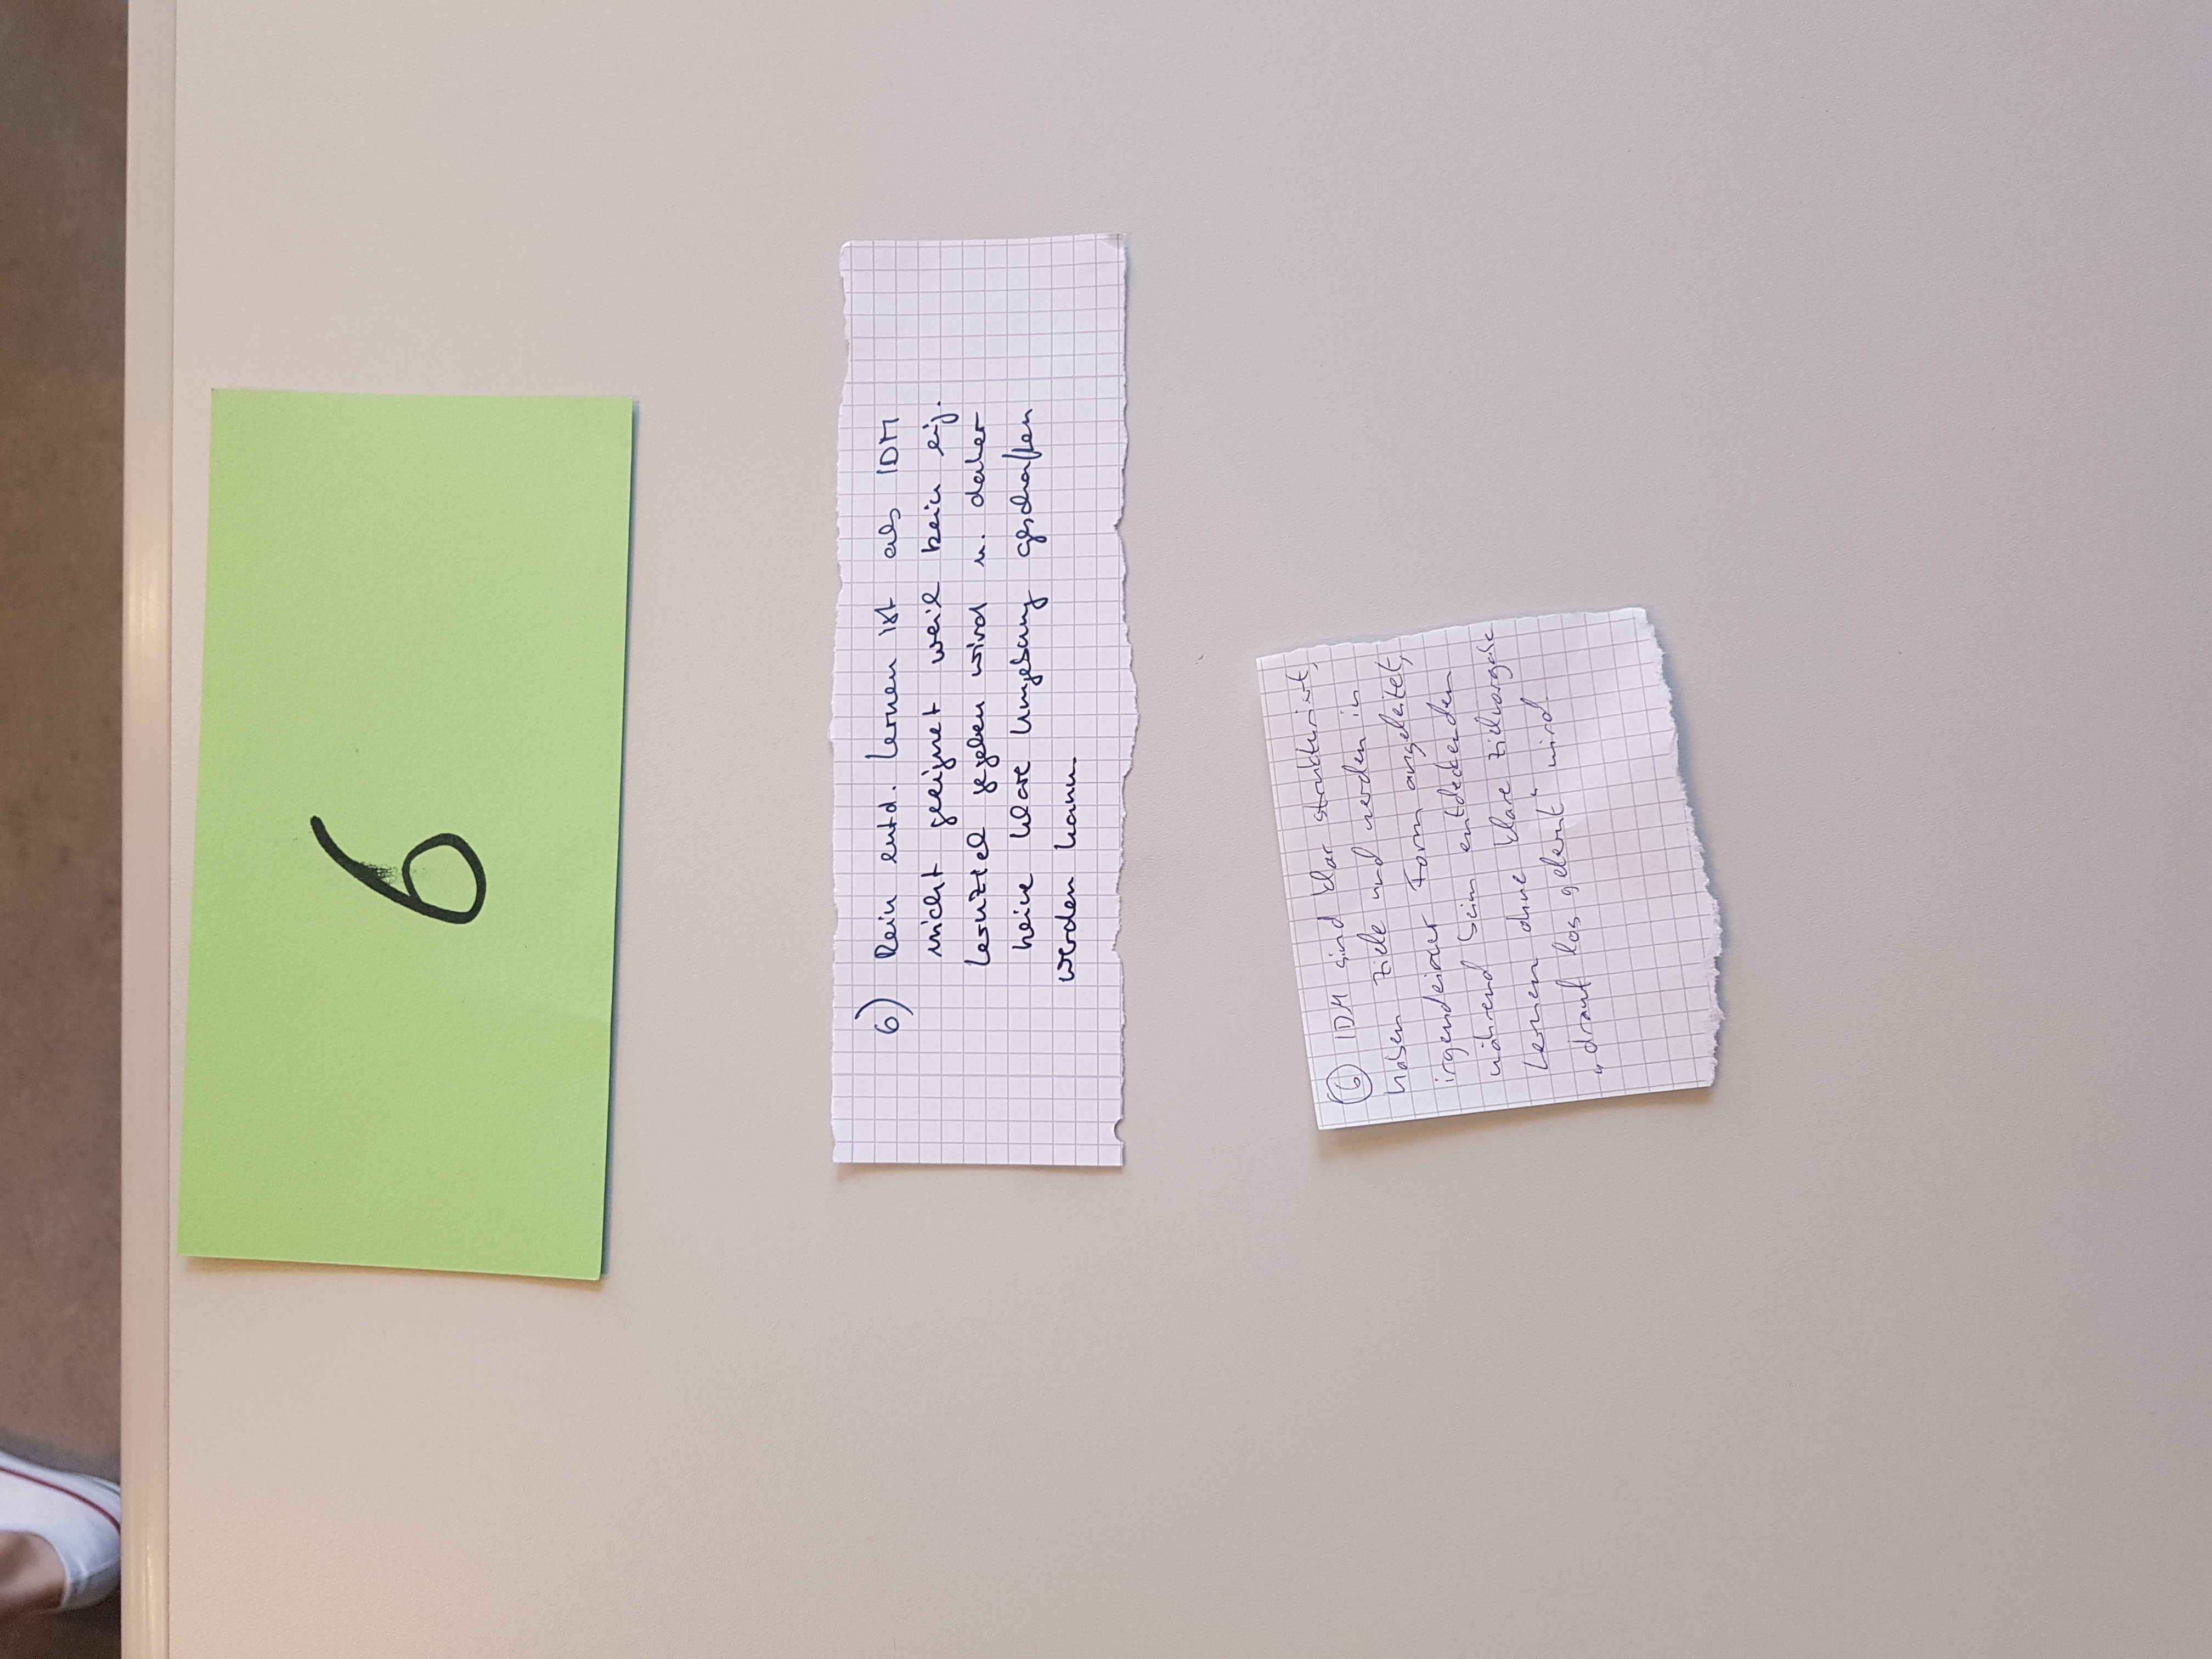 6
6) Rein entd. Lernen ist als IDM
nicht geeignet weil kein eig.
Lernziel gegeben wird u. daher
keine klare Umgebung geschaffen
werden kann.
6 IDM sind klar strukturiert,
haben Ziele und werden in
irgendeiner Form angeleitet,
während beim entdeckenden
Lernen ohne klare Zielvorgabe
„drauf los gelernt“ wird.